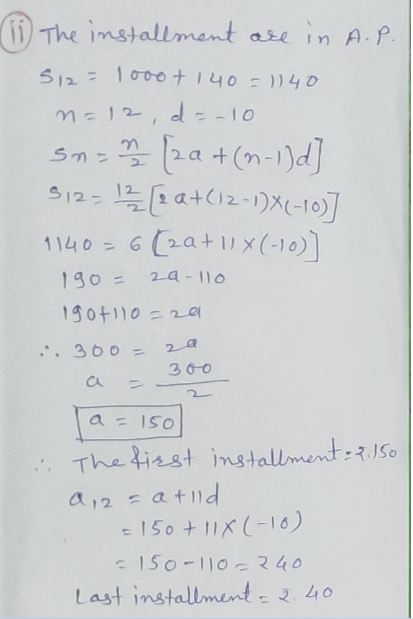 (ii) The installment are in A.P.
S12 = 1000 + 140 = 1140
n = 12, d = -10
Sn = n/2 [2a + (n-1)d]
S12 = 12/2 [2a + (12-1)×(-10)]
1140 = 6 [2a + 11×(-10)]
190 = 2a - 110
190 + 110 = 2a
∴ 300 = 2a
a = 300/2
a = 150
∴ The first installment = ₹.150
a12 = a + 11d
= 150 + 11×(-10)
= 150 - 110 = ₹40
Last installment = ₹. 40